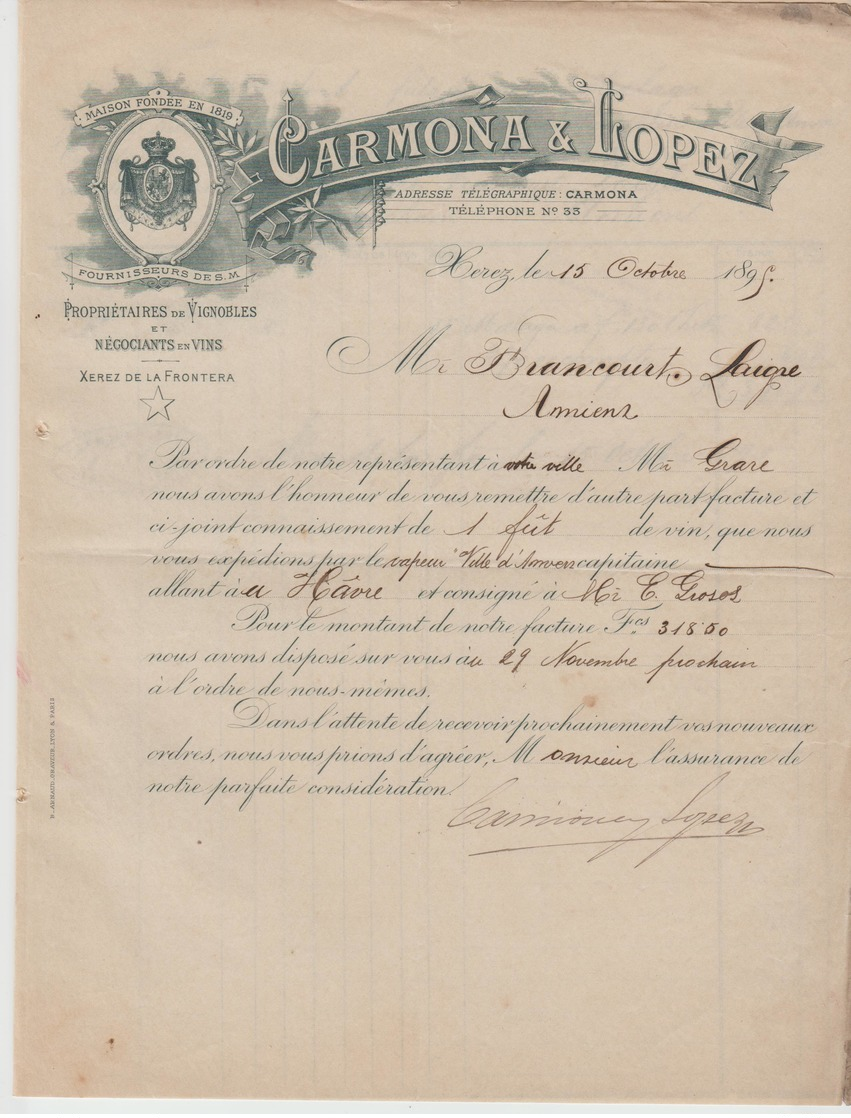 MAISON FONDÉE EN 1819
CARMONA & LOPEZ
ADRESSE TÉLÉGRAPHIQUE: CARMONA
TÉLÉPHONE Nº 33
FOURNISSEURS DE S.M.
PROPRIÉTAIRES DE VIGNOBLES
ET
NÉGOCIANTS EN VINS
XEREZ DE LA FRONTERA
Xerez, le 15 Octobre 1895.
Mr Brancourt. Laigre
Amiens
Par ordre de notre représentant à votre ville Mr Grare
nous avons l'honneur de vous remettre d'autre part facture et
ci-joint connaissement de 1 fût de vin, que nous
vous expédions par le vapeur "Ville d'Anvers capitaine
allant à u Hâvre et consigné à Mr E. Grosos
Pour le montant de notre facture Fcs 318.50
nous avons disposé sur vous à u 29 Novembre prochain
à l'ordre de nous-mêmes.
Dans l'attente de recevoir prochainement vos nouveaux
ordres, nous vous prions d'agréer, Monsieur l'assurance de
notre parfaite considération.
Carmona y Lopez
B. ARNAUD, GRAVEUR, LYON & PARIS